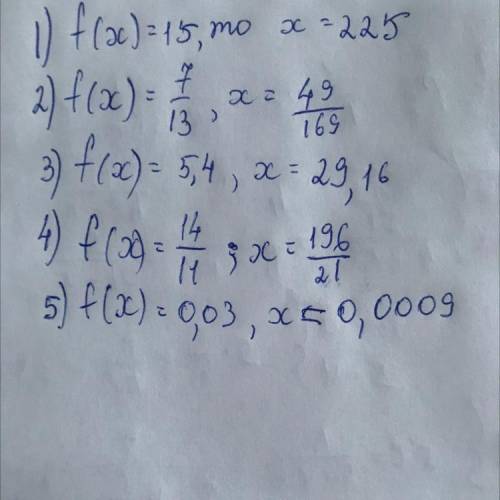 1) f(x)=15, то x=225
2) f(x) = 7/13, x = 49/169
3) f(x) = 5,4, x = 29,16
4) f(x) = 14/11; x = 196/21
5) f(x) = 0,03, x = 0,0009